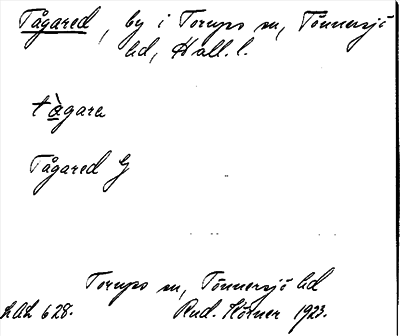 Tågared, by i Torups sn, Tönnersjö
hd, Hall. l.
tàgara
Tågared G
Torups sn, Tönnersjö hd
LAL 628. Rud. Hörner 1923.